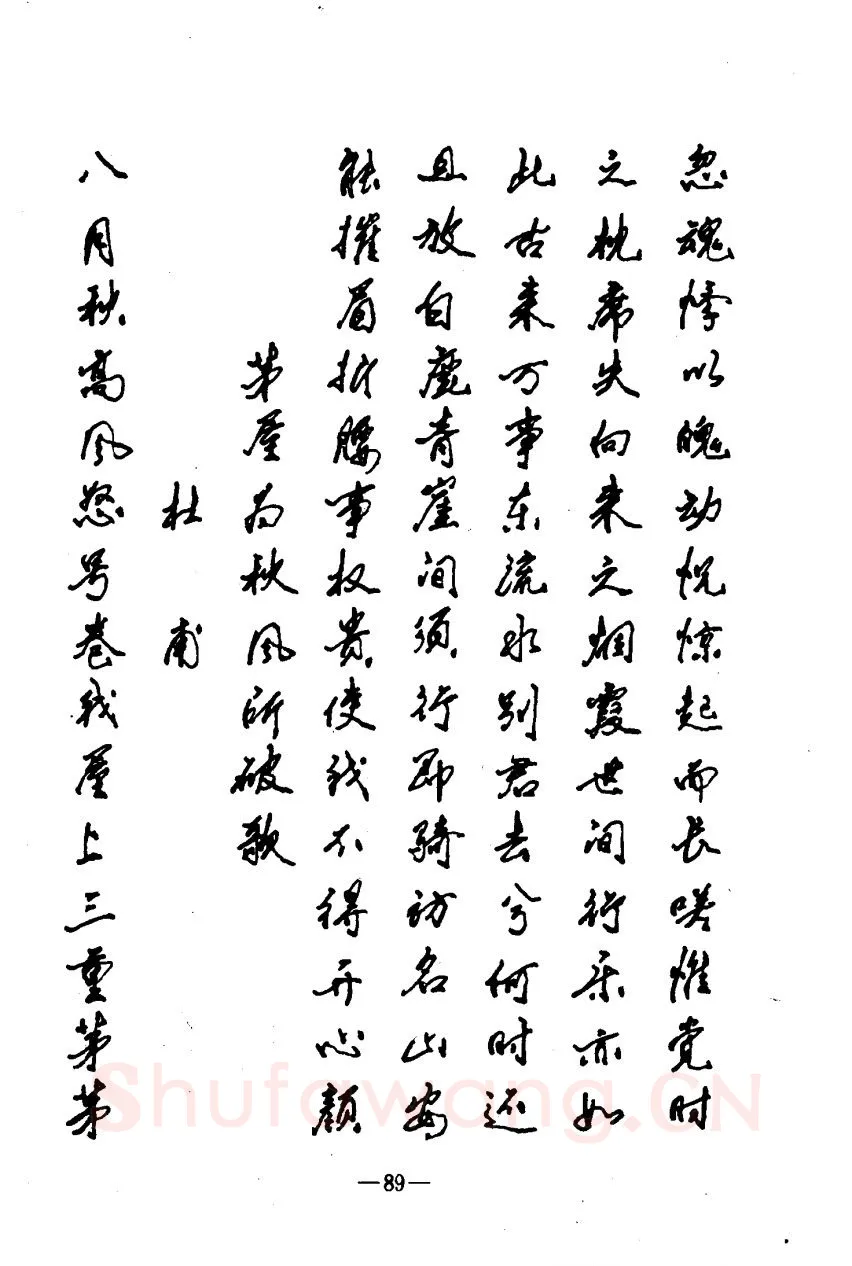 忽魂悸以魄动恍惊起而长嗟惟觉时
之枕席失向来之烟霞世间行乐亦如
此古来万事东流水别君去兮何时还
且放白鹿青崖间须行即骑访名山安
能摧眉折腰事权贵使我不得开心颜
茅屋为秋风所破歌
杜甫
八月秋高风怒号卷我屋上三重茅茅
—89—
Shufawang.CN